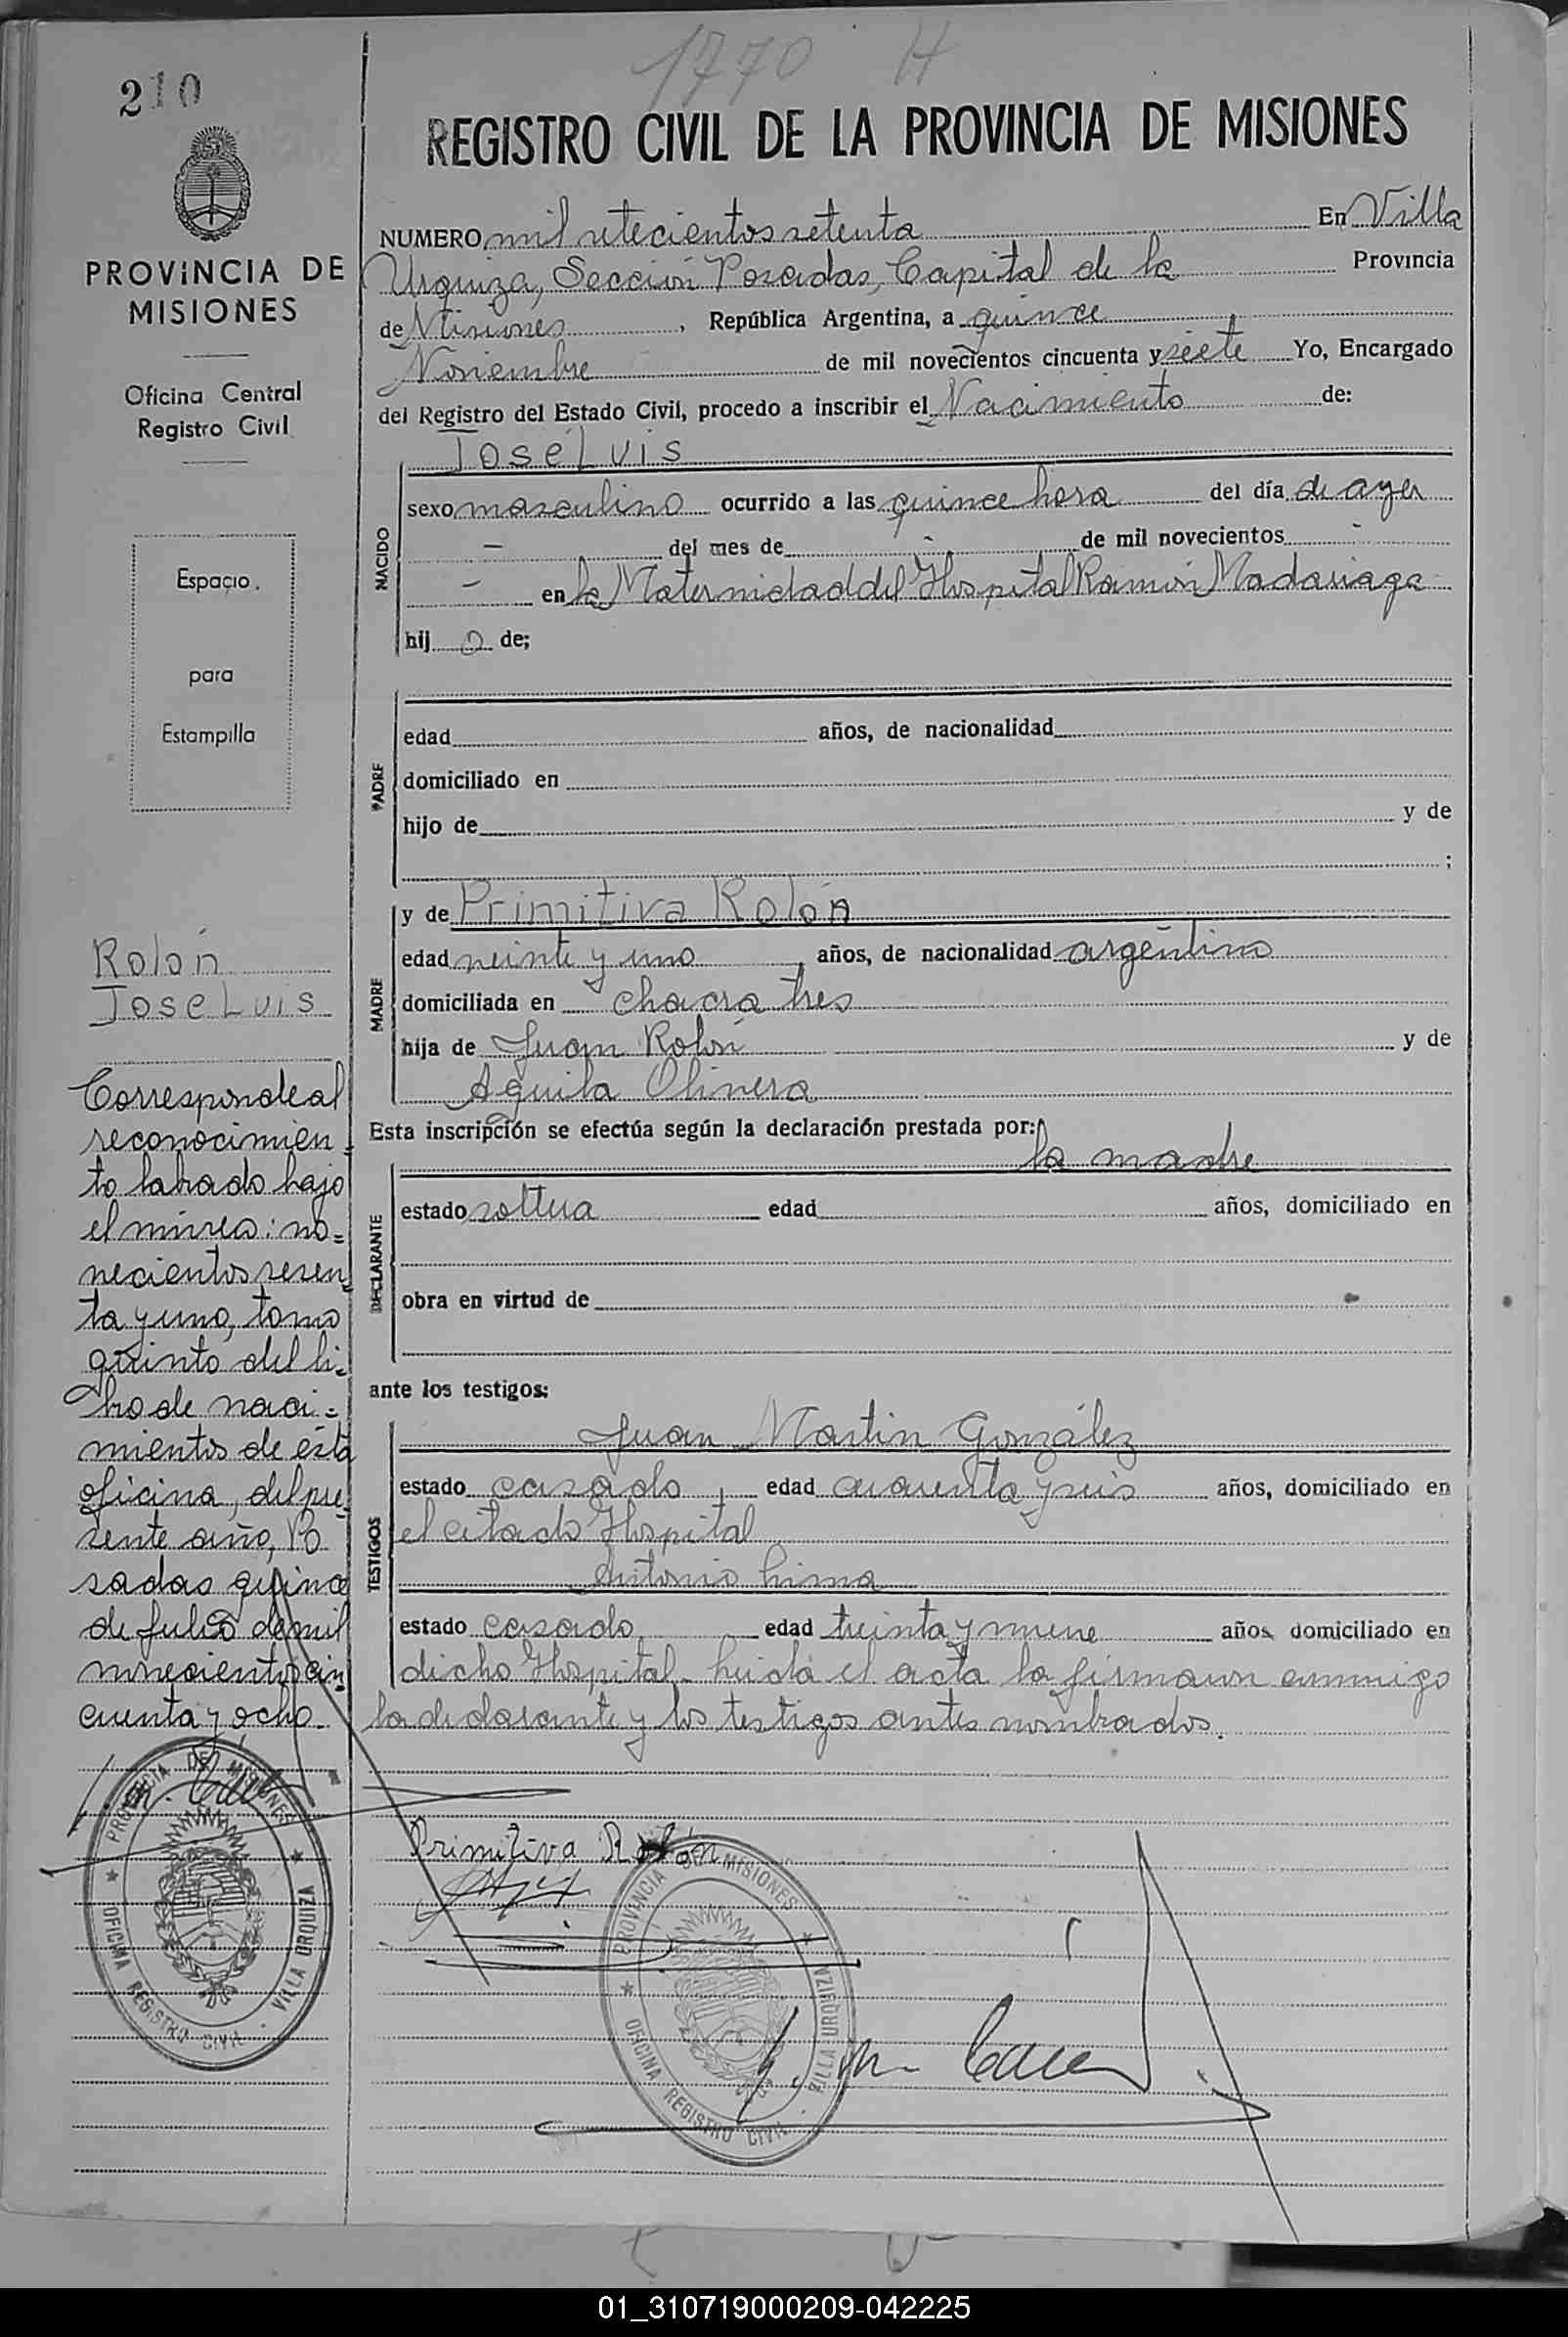 1770 H
210
REGISTRO CIVIL DE LA PROVINCIA DE MISIONES
PROVINCIA DE
MISIONES
Oficina Central
Registro Civil
Espacio
para
Estampilla
NUMERO mil setecientos setenta En Villa
Urquiza, Sección Posadas, Capital de la Provincia
de Misiones, República Argentina, a quince
Noviembre de mil novecientos cincuenta y siete Yo, Encargado
del Registro del Estado Civil, procedo a inscribir el Nacimiento de:
José Luis
NACIDO
sexo masculino ocurrido a las quince hora del día de ayer
- del mes de - de mil novecientos -
- en la Maternidad del Hospital Ramón Madariaga
hij o de;
PADRE
edad años, de nacionalidad
domiciliado en
hijo de y de
;
MADRE
y de Primitiva Rolón
edad veinte y uno, años, de nacionalidad argentina
domiciliada en chacra tres
hija de Juan Rolón y de
Aguila Olivera
Esta inscripción se efectúa según la declaración prestada por:
la madre
DECLARANTE
estado soltera edad años, domiciliado en
obra en virtud de
ante los testigos:
TESTIGOS
Juan Martin González
estado casado, edad cuarenta y seis años, domiciliado en
el citado Hospital
Antonio Lima
estado casado edad treinta y nueve años domiciliado en
dicho Hospital - Leida el acta la firmaron conmigo
la declarante y los testigos antes nombrados.
Primitiva Rolón
Rolón
Jose Luis
Corresponde al
reconocimien=
to labrado bajo
el número: no=
vecientos sesen
ta y uno, tomo
quinto del li=
bro de naci=
mientos de esta
oficina, del pre
sente año, Po
sadas quince
de Julio de mil
novecientos cin
cuenta y ocho.
PROVINCIA DE MISIONES
OFICINA REGISTRO CIVIL · VILLA URQUIZA
PROVINCIA DE MISIONES
OFICINA REGISTRO CIVIL · VILLA URQUIZA
01_310719000209-042225